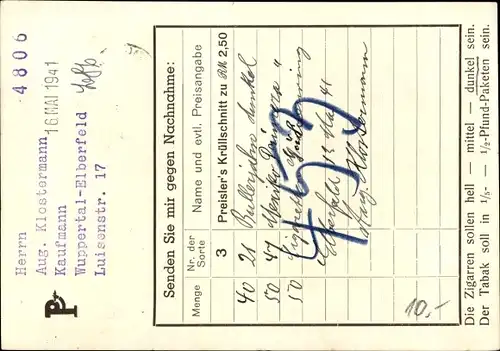 4806
Herrn
Aug. Klostermann
16 MAI 1941
Kaufmann
Wuppertal-Elberfeld
Luisenstr. 17
P
Senden Sie mir gegen Nachnahme:
Menge Nr. der Sorte Name und evtl. Preisangabe
3 Preisler's Krüllschnitt zu RM 2,50
40 21 dunkel
50 47 Mexiko "
50
Elberfeld 13 Mai 41
Aug. Klostermann
453
10.-
Die Zigarren sollen hell — mittel — dunkel sein.
Der Tabak soll in 1/5- — 1/2-Pfund-Paketen sein.